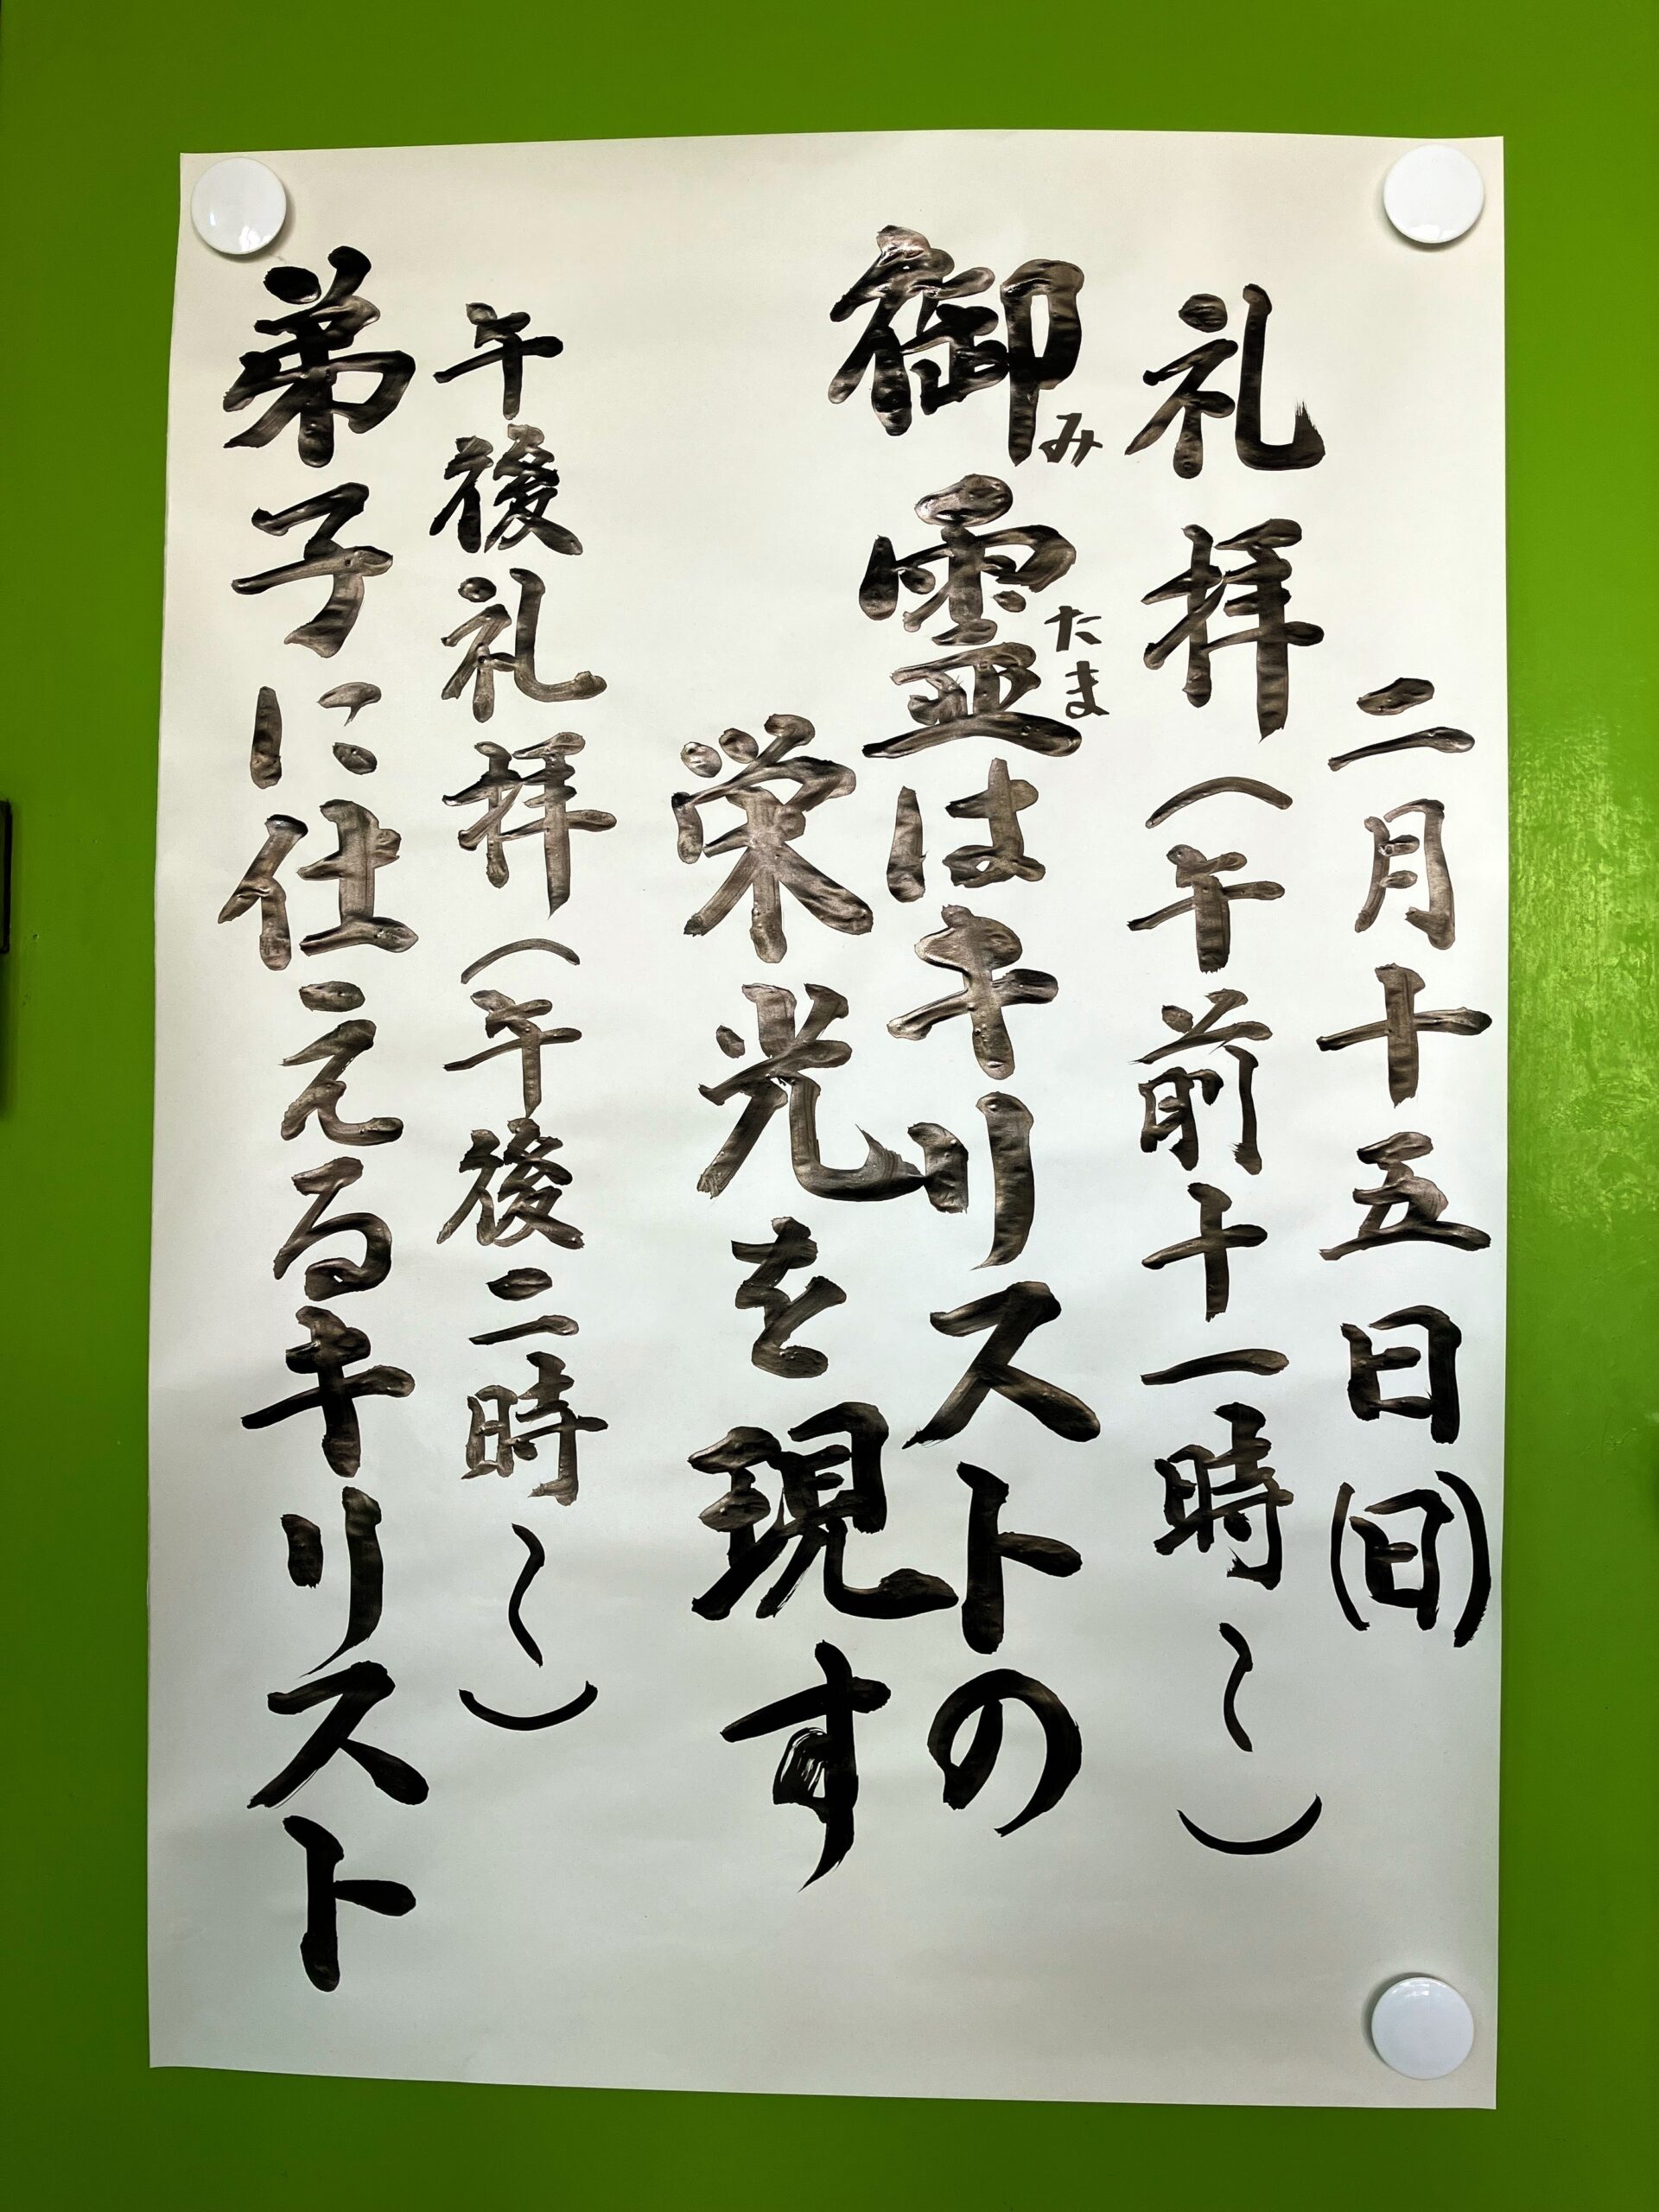 二月十五日(日)
礼拝(午前十一時～)
御霊はキリストの
みたま
栄光を現す
午後礼拝(午後二時～)
弟子に仕えるキリスト